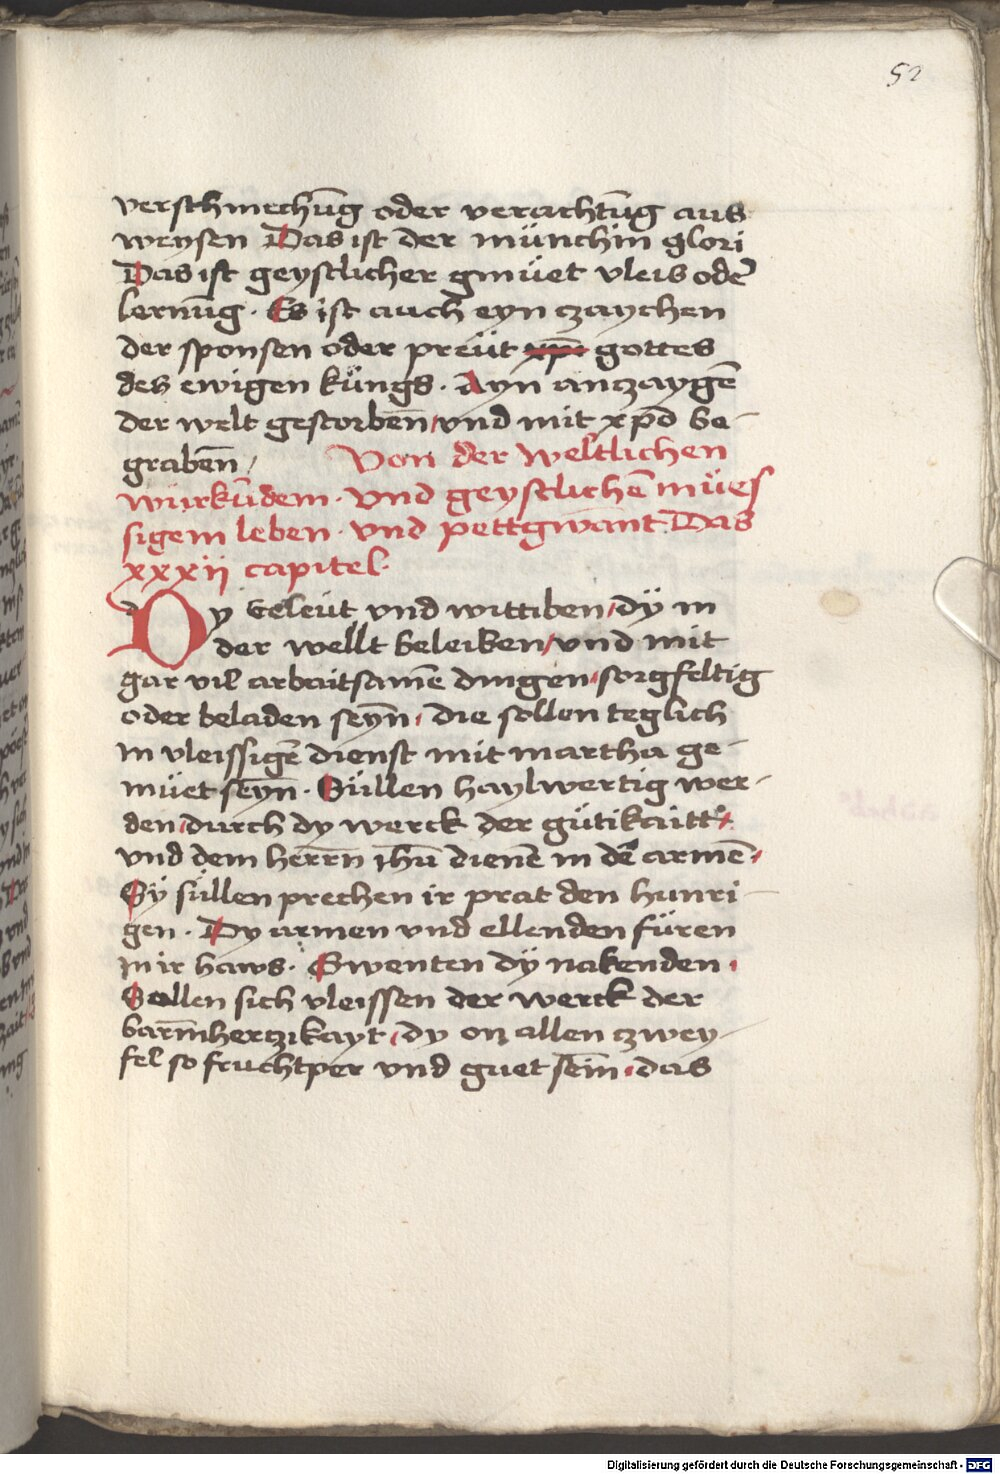 52
verschmechūg oder verachtūg aus
weysen Das ist der münchin glori
Das ist geystlicher gmüet vleis oder̄
lernūg · Es ist auch eyn czaychen
der sponsen oder preüt xp̄i gottes
des ewigen küngs · Ayn anczaygē
der welt gestorben̄ vnd mit xp̄o be-
graben̄ / Von der weltlichen
würkūdem · vnd geystlichē mües
sigem leben · vnd pettgwant Das
xxxij capitel ·
Dy Eeleüt vnd wittiben / dÿ in
der wellt beleiben / vnd mit
gar vil arbaitsamē dingen sorgfeltig
oder beladen seyn̄ · die sollen teglich
in vleissigē dienst mit martha ge-
müet seyn̄ · Süllen haylwertig wer-
den / durch dy werck der gütikaitt
vnd dem herrn̄ ih̄u dienē in dē armē
Sÿ süllen prechen ir prat den hunri-
gen · Dy armen vnd ellenden füren
in ir haws · Gwenten dÿ nakenden
Sollen sich vleissen der werck der
barm̄herczikayt / dy on allen czwey-
fel so fruchtper vnd guet sein̄ · das
Digitalisierung gefördert durch die Deutsche Forschungsgemeinschaft - DFG